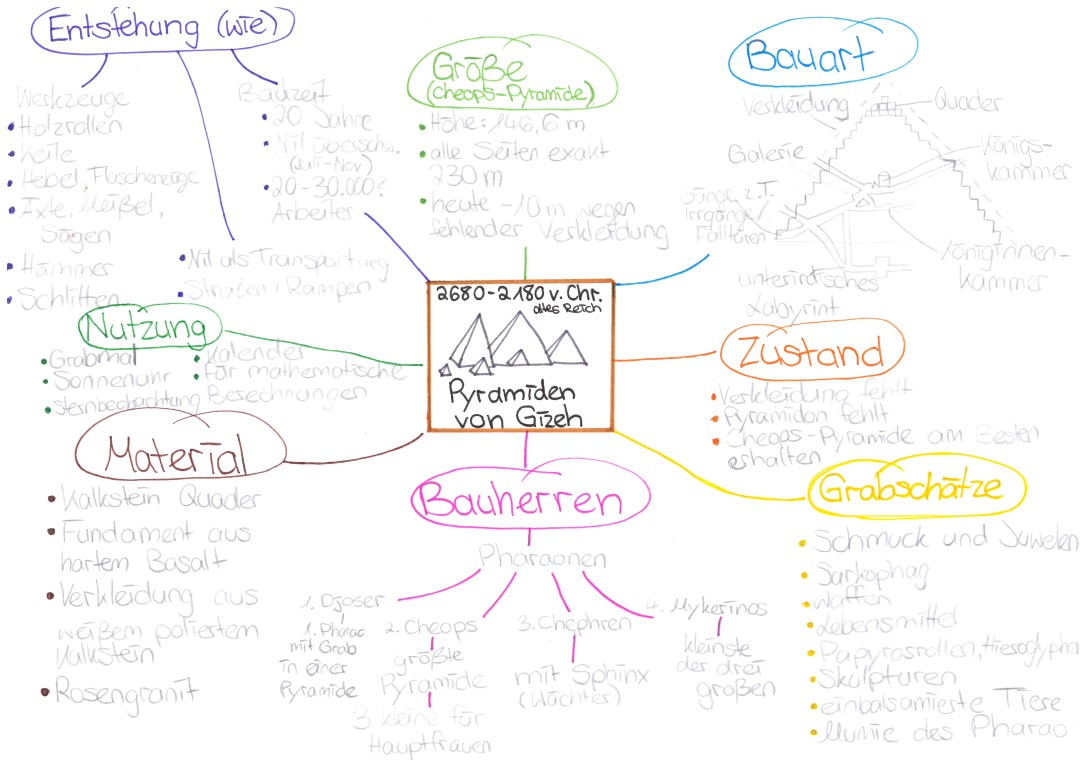 Entstehung (wie)
Werkzeuge
• Holzrollen
• Keile
• Hebel, Flaschenzüge
• Äxte, Meißel,
Sägen
• Hämmer
• Schlitten
• Nil als Transportweg
• Straßen + Rampen
Bauzeit
• 20 Jahre
• Nil überschw.
(Juli-Nov)
• 20-30.000?
Arbeiter
Größe
(Cheops-Pyramide)
• Höhe: 146,6 m
• alle Seiten exakt
230 m
• heute -10m wegen
fehlender Verkleidung
Bauart
Verkleidung
Quader
Galerie
Königs-
kammer
Gänge z.T.
Irrgänge
Falltüren
Königinnen-
kammer
unterirdisches
Labyrint
2680-2180 v. Chr.
altes Reich
Pyramiden
von Gizeh
Nutzung
• Grabmal
• Sonnenuhr
• Sternbeobachtung
• Kalender
• für mathematische
Berechnungen
Zustand
• Verkleidung fehlt
• Pyramidon fehlt
• Cheops-Pyramide am Besten
erhalten
Material
• Kalkstein Quader
• Fundament aus
hartem Basalt
• Verkleidung aus
weißem poliertem
Kalkstein
• Rosengranit
Bauherren
Pharaonen
1. Djoser
1. Pharao
mit Grab
in einer
Pyramide
2. Cheops
größte
Pyramide
3 kleine für
Hauptfrauen
3. Chephren
mit Sphinx
(Wächter)
4. Mykerinos
kleinste
der drei
großen
Grabschätze
• Schmuck und Juwelen
• Sarkophag
• Waffen
• Lebensmittel
• Papyrosrollen, Hieroglyphen
• Skulpturen
• einbalsamierte Tiere
• Mumie des Pharao